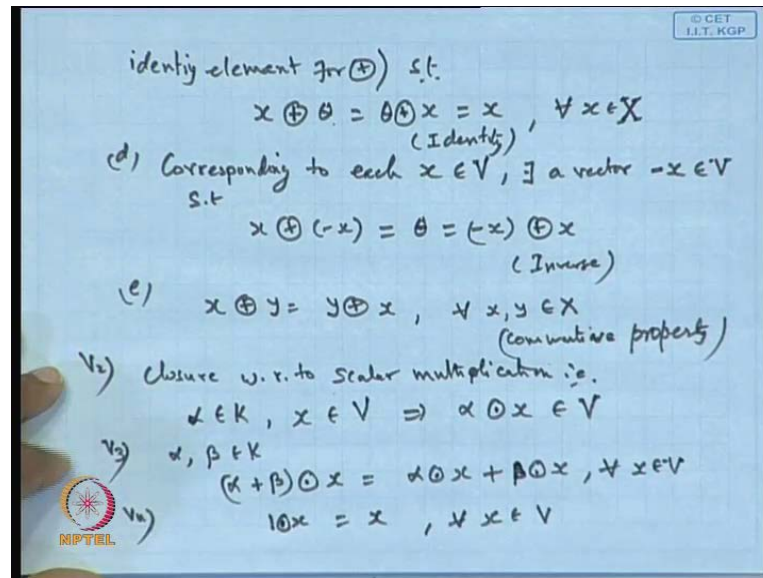 © CET
I.I.T. KGP
identiy element for ⊕) s.t.
x ⊕ θ = θ ⊕ x = x , ∀ x ∈ X
(Identity)
(d) Corresponding to each x ∈ V, ∃ a vector -x ∈ V
s.t
x ⊕ (-x) = θ = (-x) ⊕ x
(Inverse)
(e) x ⊕ y = y ⊕ x , ∀ x, y ∈ X
(commutive property)
V₂) Closure w.r.to scalar multiplication i.e.
α ∈ K , x ∈ V ⇒ α ⊙ x ∈ V
V₃) α, β ∈ K
(α + β) ⊙ x = α ⊙ x + β ⊙ x , ∀ x ∈ V
V₄) 1 ⊙ x = x , ∀ x ∈ V
NPTEL